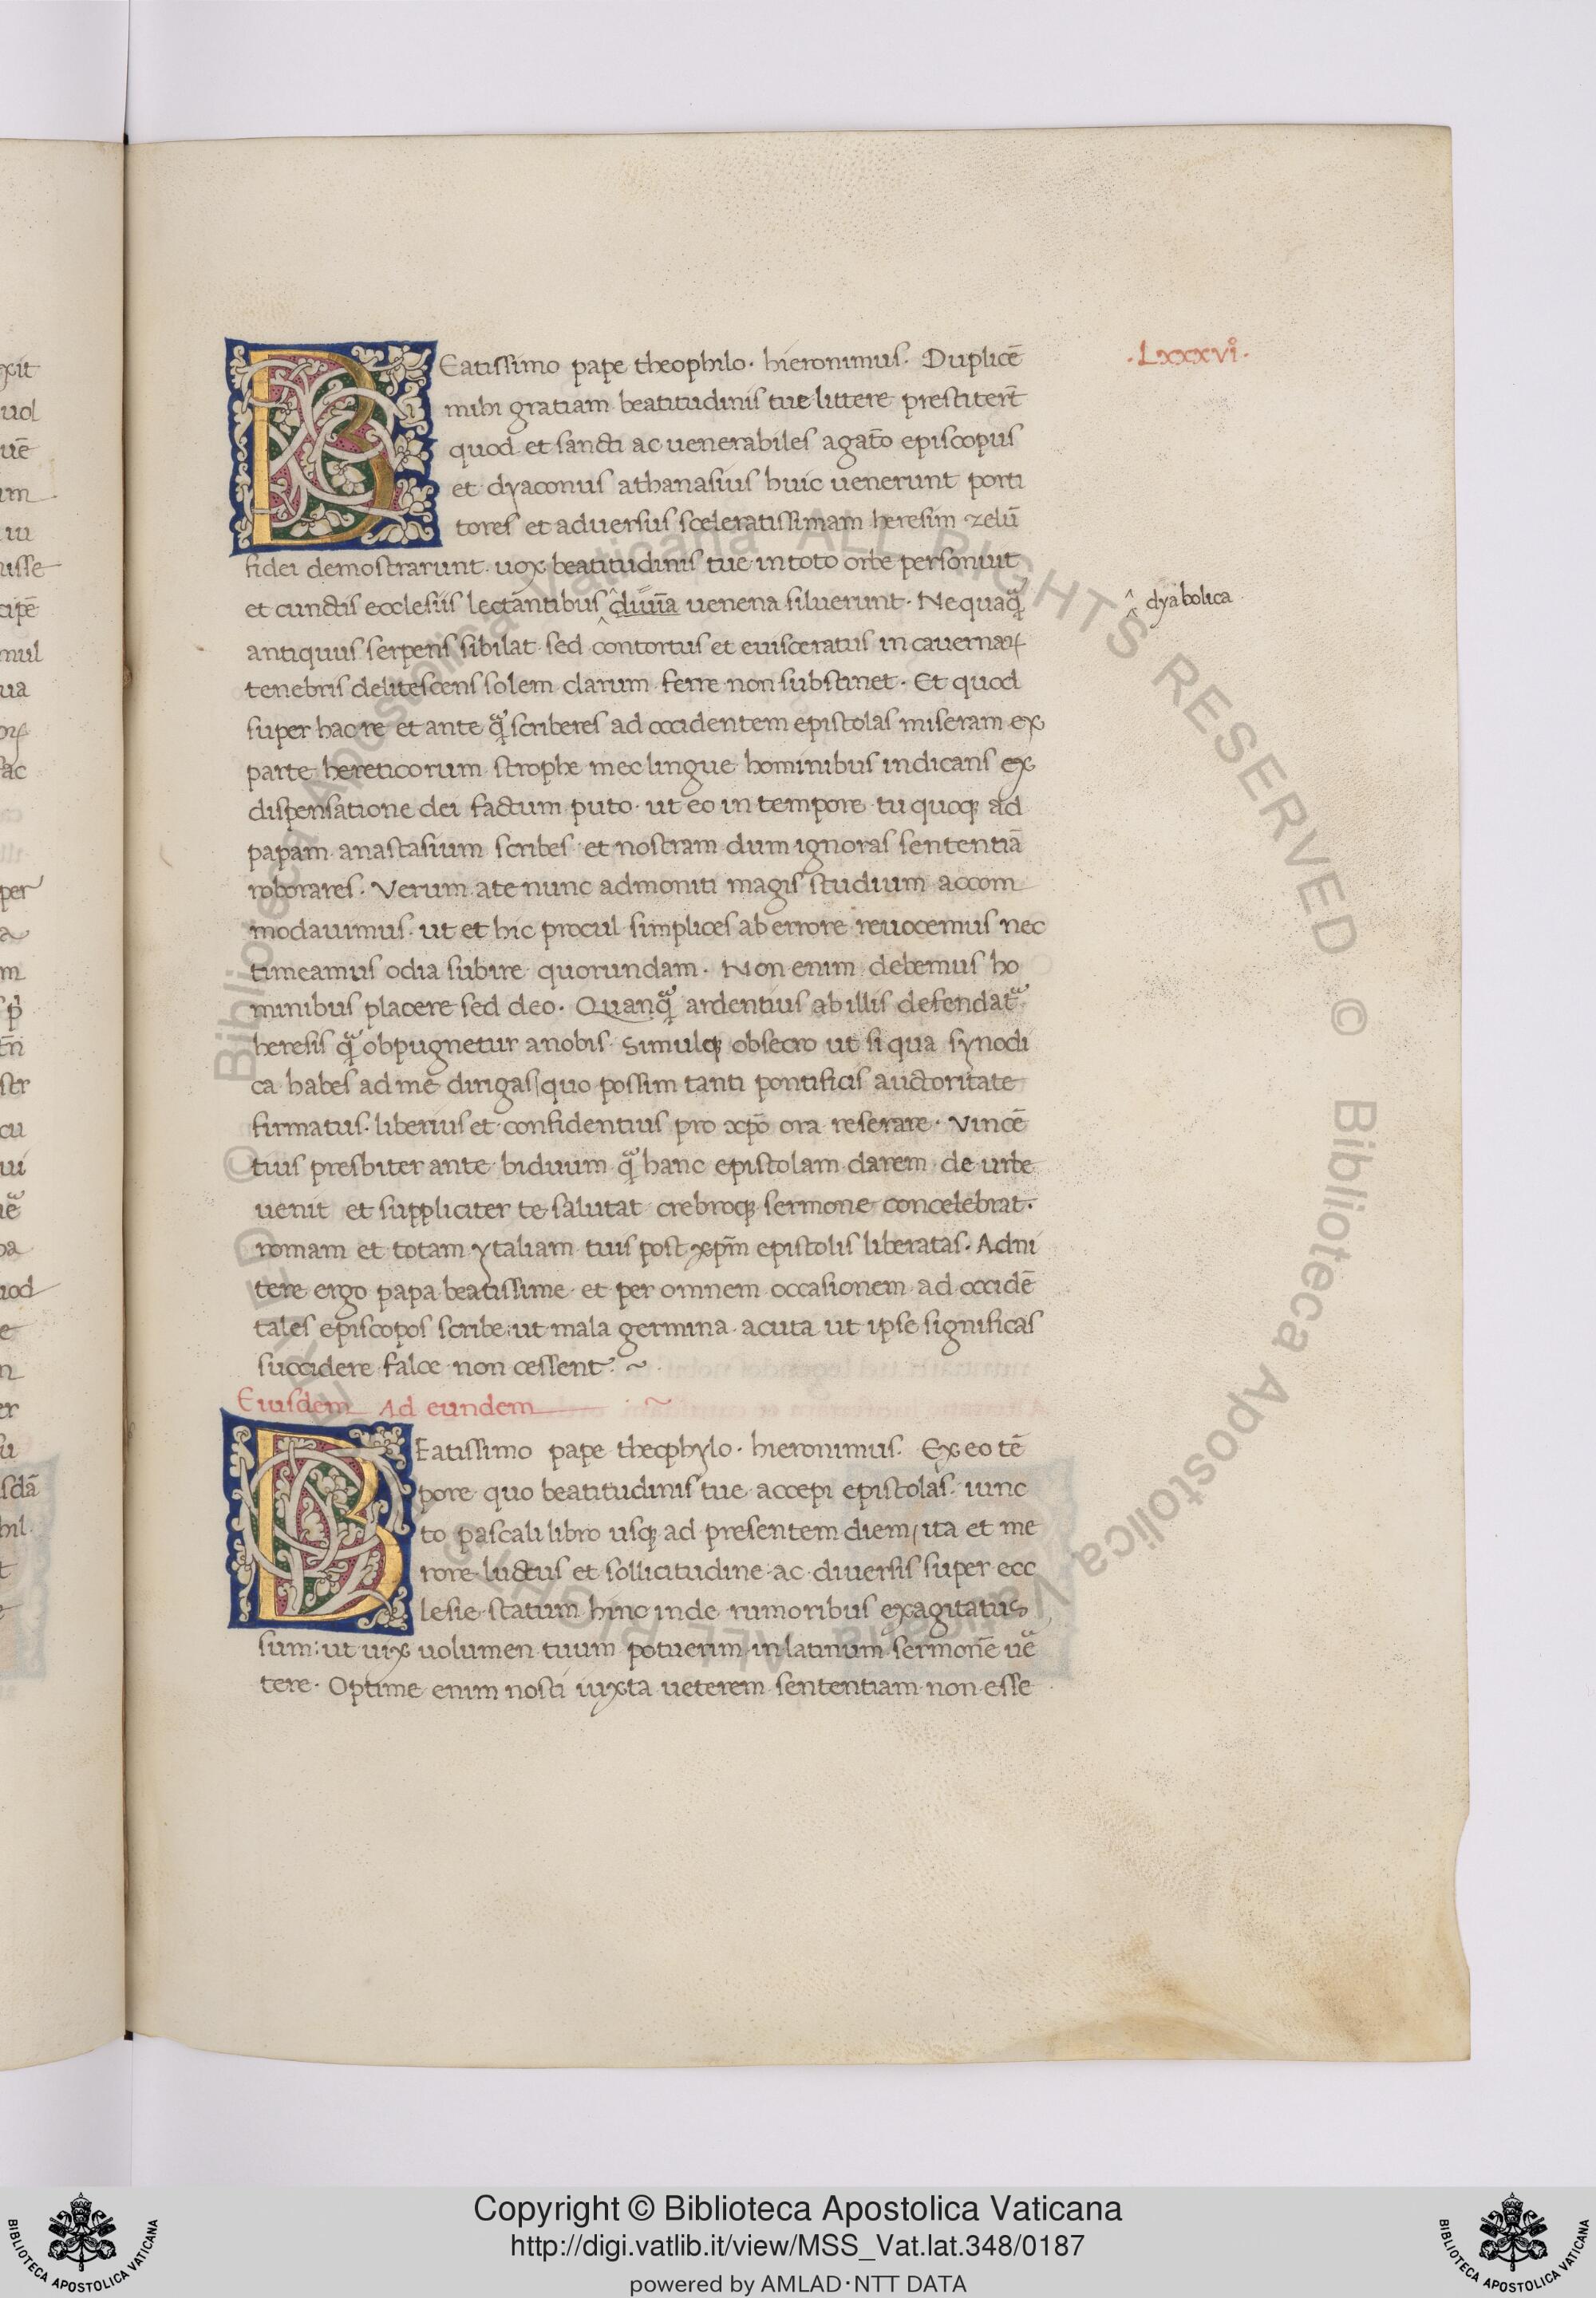 BEatissimo pape theophilo. hieronimus. Duplicē
.Lxxxvi.
mihi gratiam beatitudinis tue littere prestiter̄t
quod et sancti ac uenerabiles agato episcopus
et dyaconus athanasius huic uenerunt porti
tores et aduersus sceleratissimam heresim zelū
fidei demostrarunt. uox beatitudinis tue in toto orbe personuit
et cunctis ecclesiis lectantibus diuīa uenena siluerunt. Nequaq̃
dyabolica
antiquus serpens sibilat sed contortus et euisceratus in cauernaꝝ
tenebris delitescens solem clarum ferre non substinet. Et quod
super hac re et ante q̃ scriberes ad occidentem epistolas miseram ex
parte hereticorum strophe mee lingue hominibus indicans ex
dispensatione dei factum puto. ut eo in tempore tu quoqꝫ ad
papam anastasium scribes et nostram dum ignoras sententiā
roborares. Verum ate nunc admoniti magis studium accom
modauimus. ut et hic procul simplices ab errore reuocemus nec
timeamus odia subire quorundam. Non enim debemus ho
minibus placere sed deo. Quanq̃ ardentius ab illis defendat᷑
heresis q̃ obpugnetur anobis. Simulqꝫ obsecro ut si qua synodi
ca habes ad me dirigas/quo possim tanti pontificis auctoritate
firmatus. liberius et confidentius pro xp̄o ora reserare. Vincē
tius presbiter ante biduum q̃ hanc epistolam darem de urbe
uenit et suppliciter te salutat crebroqꝫ sermone concelebrat.
romam et totam ytaliam tuis post xp̄m epistolis liberatas. Adni
tere ergo papa beatissime et per omnem occasionem ad occidē
tales episcopos scribe:ut mala germina acuta ut ipse significas
succidere falce non cessent. ~
Eiusdem Ad eundem
BEatissimo pape theophylo. hieronimus. Ex eo tē
pore quo beatitudinis tue accepi epistolas. iunc
to pascali libro usqꝫ ad presentem diem/ita et me
rore luctus et sollicitudine ac diuersis super ecc
lesie statum hinc inde rumoribus exagitatus
sum:ut uix uolumen tuum potuerim in latinum sermonē uē
tere. Optime enim nosti iuxta ueterem sententiam non esse
Copyright © Biblioteca Apostolica Vaticana
http://digi.vatlib.it/view/MSS_Vat.lat.348/0187
powered by AMLAD·NTT DATA